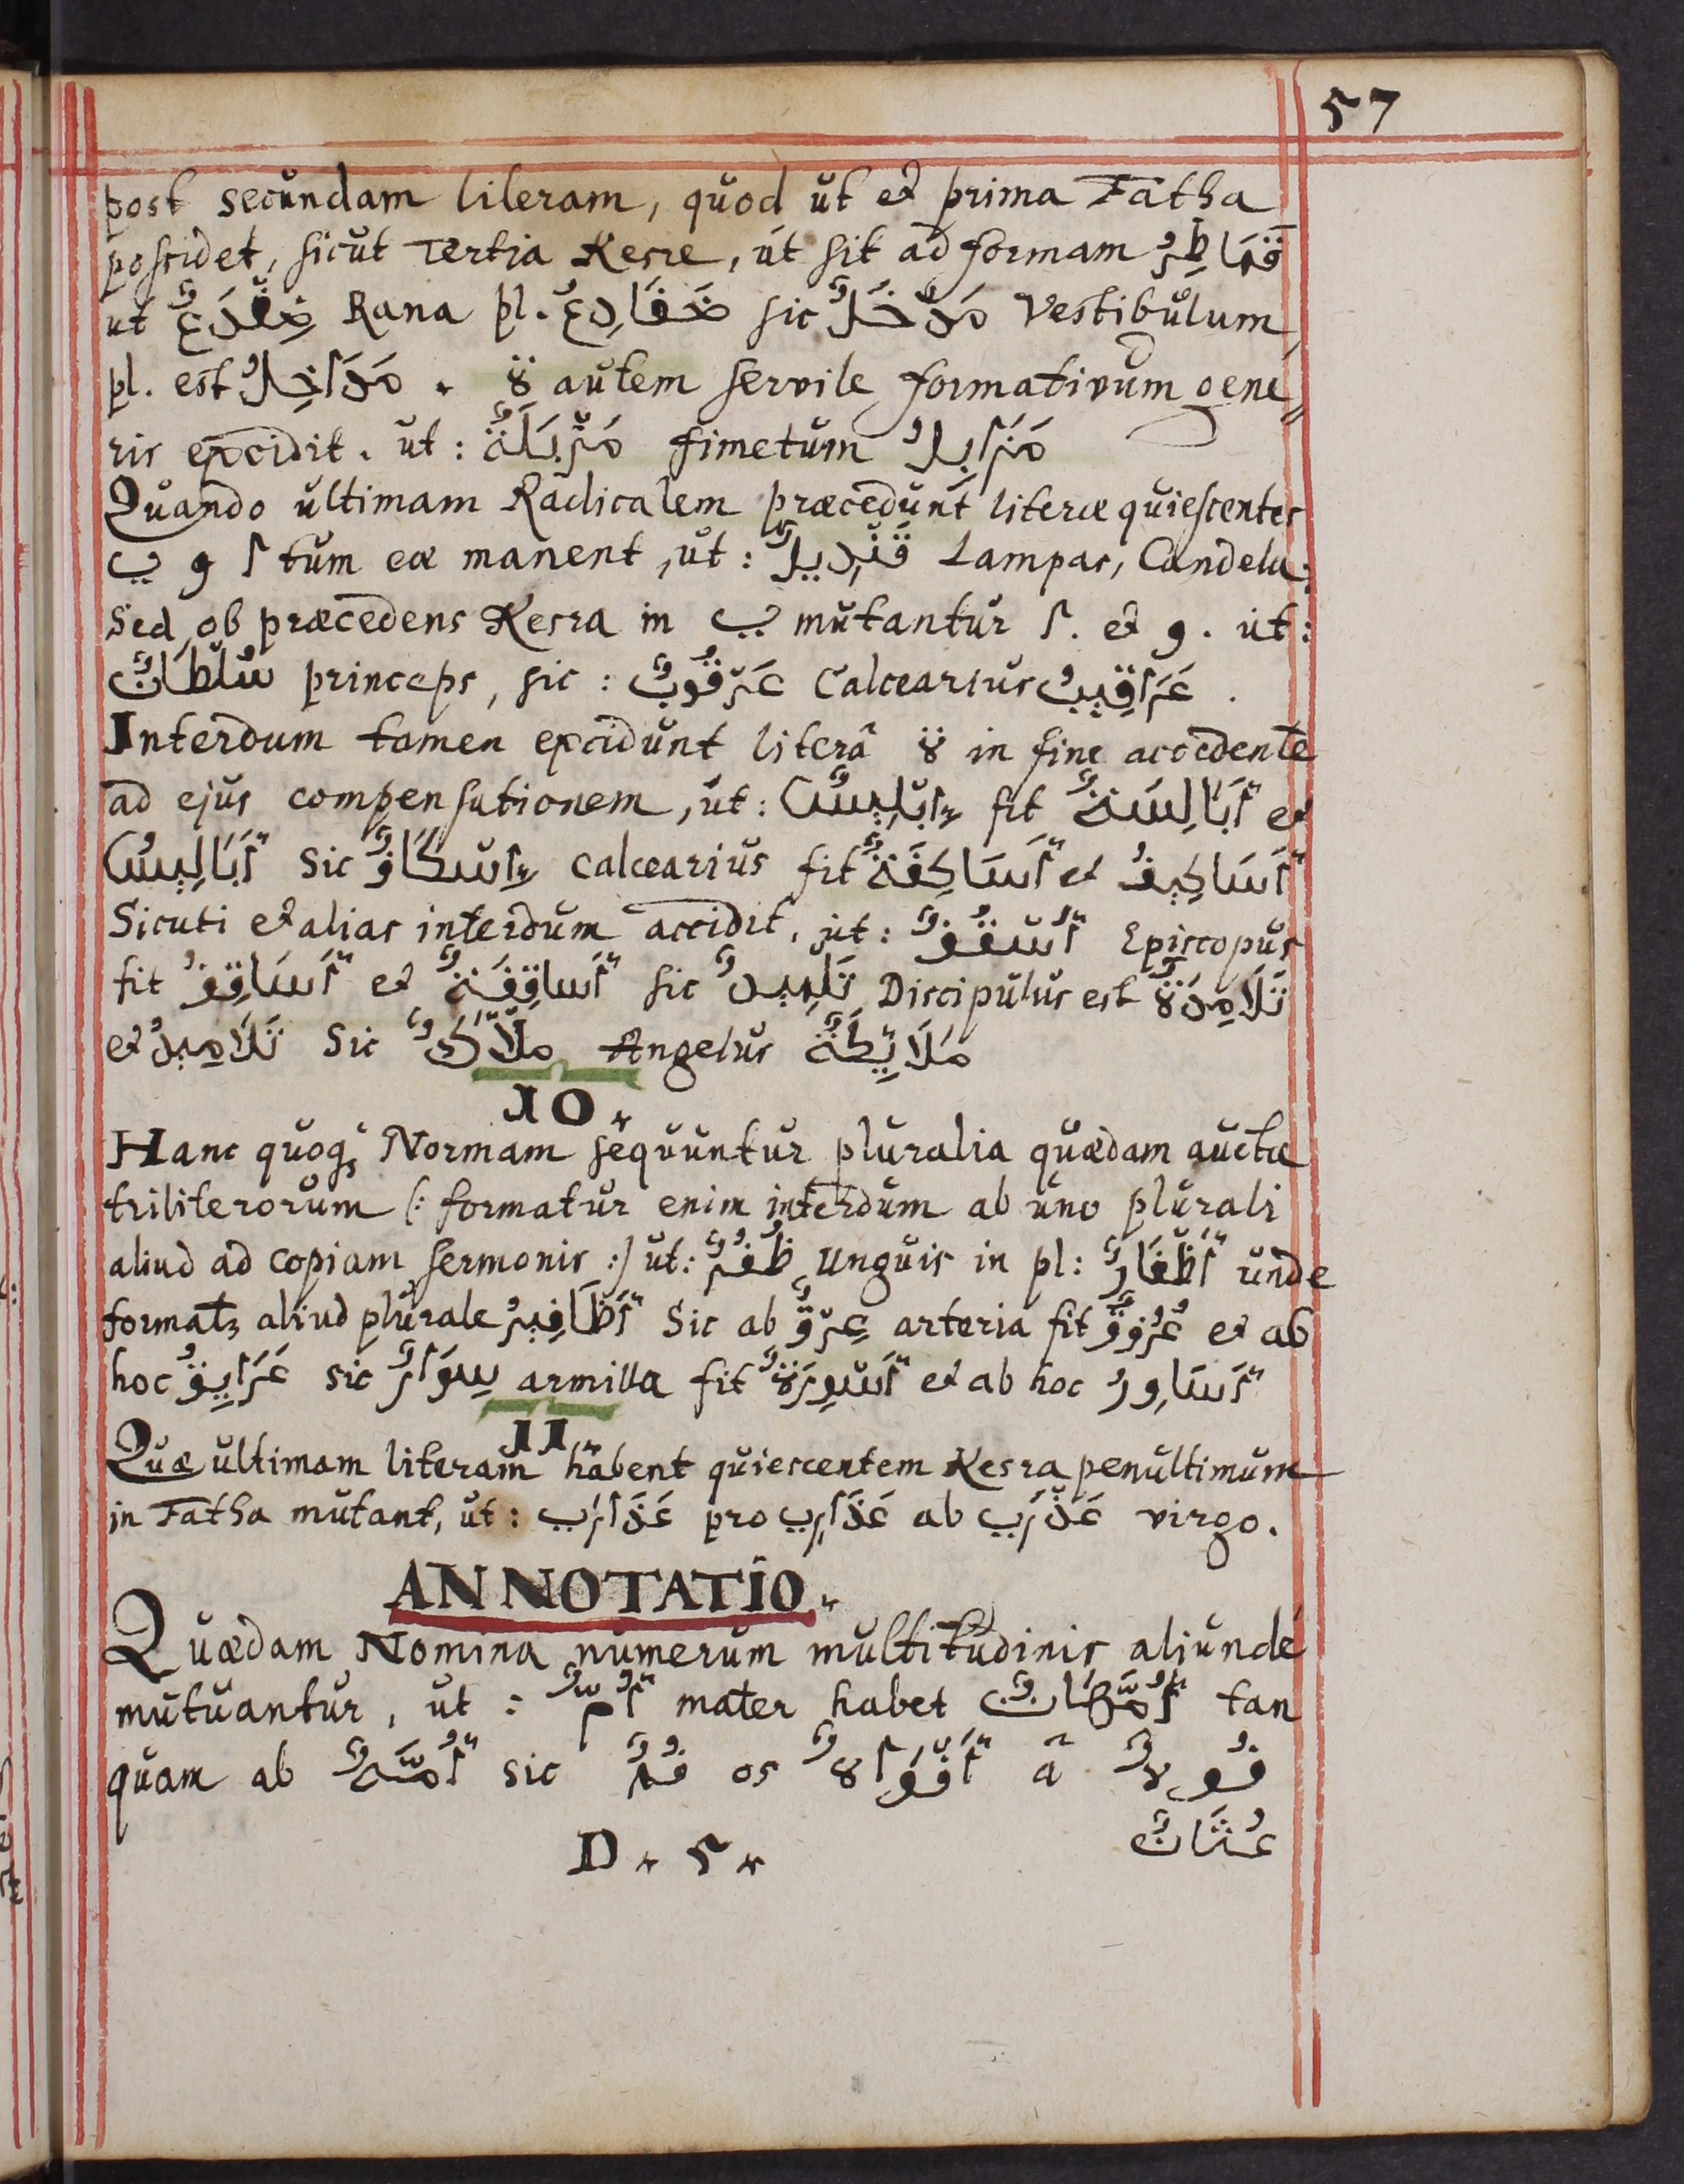 57
post secundam literam, quod ut et prima Fatha
possidet, sicut Tertia Kesre, ut sit ad formam قَمَاطِرُ
ut ضِفْدَعٌ Rana pl. ضَفَادِعُ sic مَدْخَلٌ Vestibulum,
pl. est مَدَاخِلُ . ة autem servile formativum gene
ris excidit. ut: مَزْبَلَةٌ fimetum مَزَابِلُ
Quando ultimam Radicalem præcedunt literæ quiescentes
ا و ي tum eæ manent, ut: قَنْدِيلٌ Lampas, Candela:
Sed ob præcedens Kesra in ي mutantur ا. et و. ut:
سُلْطَانٌ princeps, sic: عَرْقُوبٌ Calcearius عَرَاقِيبُ .
Interdum tamen excidunt literâ ة in fine accedente
ad ejus compensationem, ut: إِبْلِيسٌ fit أَبَالِسَةٌ et
أَبَالِيسُ sic إِسْكَافٌ calcearius fit أَسَاكِفَةٌ et أَسَاكِيفُ
Sicuti et alias interdum accidit, ut: أُسْقُفٌ Episcopus
fit أَسَاقِفُ et أَساقِفَةٌ sic تَلمِيدٌ Discipulus est تَلَامِدَةٌ
et تَلَامِيدُ Sic مَلْأَكٌ Angelus مَلَايِكَةٌ
10.
Hanc quoq₃ Normam sequuntur pluralia quædam auctæ
triliterorum (: formatur enim interdum ab uno plurali
aliud ad copiam sermonis :) ut: ظُفُرٌ Unguis in pl: أَظْفَارٌ unde
format₃ aliud plurale أَظَافِيرُ Sic ab عِرْقٌ arteria fit عُرُوقٌ et ab
hoc عَرَايِقُ sic سِوَارٌ armilla fit أَسْوِرَةٌ et ab hoc أَسَاوِرُ
11.
Quæ ultimam literam habent quiescentem Kesra penultimum
in Fatha mutant, ut: عَذَارَي pro عَذَارِي ab عَذْرَي virgo.
ANNOTATIO.
Quædam Nomina numerum multitudinis aliundé
mutuantur, ut: أُمٌّ mater habet أُمَّهَاتٌ tan
quam ab أُمَّهٌ sic فُمٌ os أَفْوَاهٌ â فُوهٌ
D . 5 .